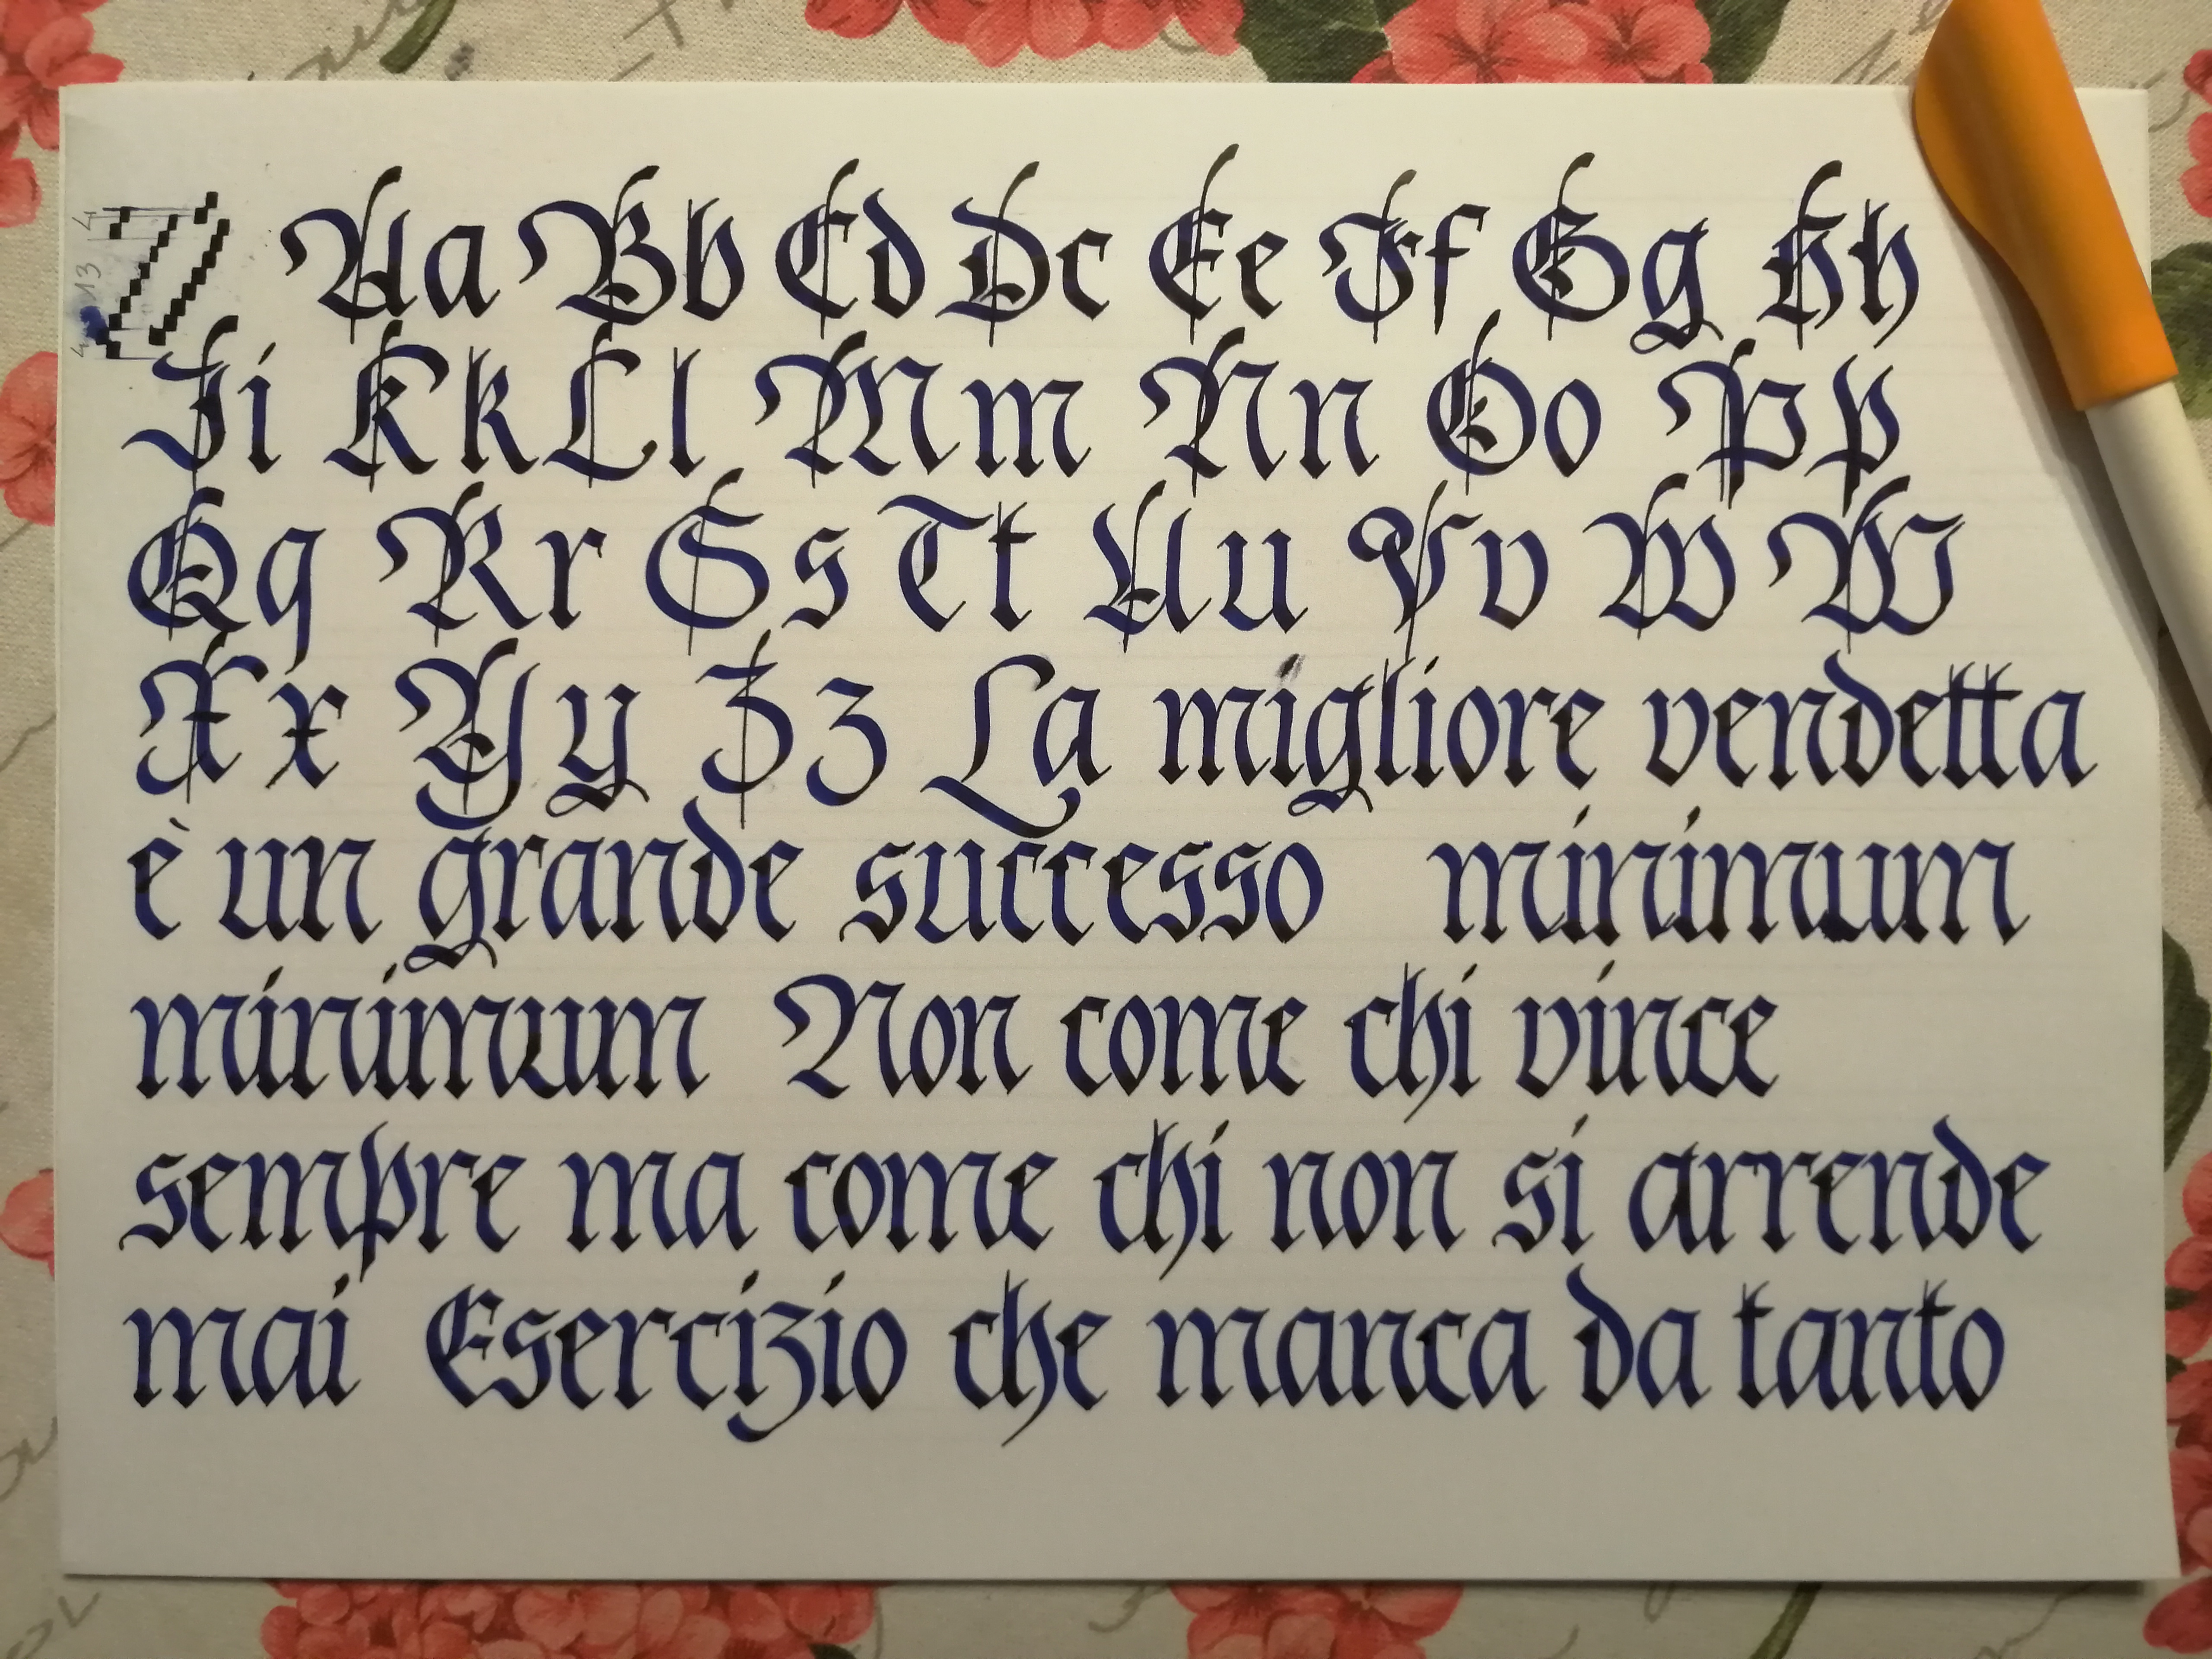 4 13 4
Aa Bb Cd Dc Ee Ff Gg Hh
Ii Kk Ll Mm Nn Oo Pp
Qq Rr Ss Tt Uu Vv W W
Xx Yy Zz La migliore vendetta
è un grande successo minimum
minimum Non come chi vince
sempre ma come chi non si arrende
mai Esercizio che manca da tanto